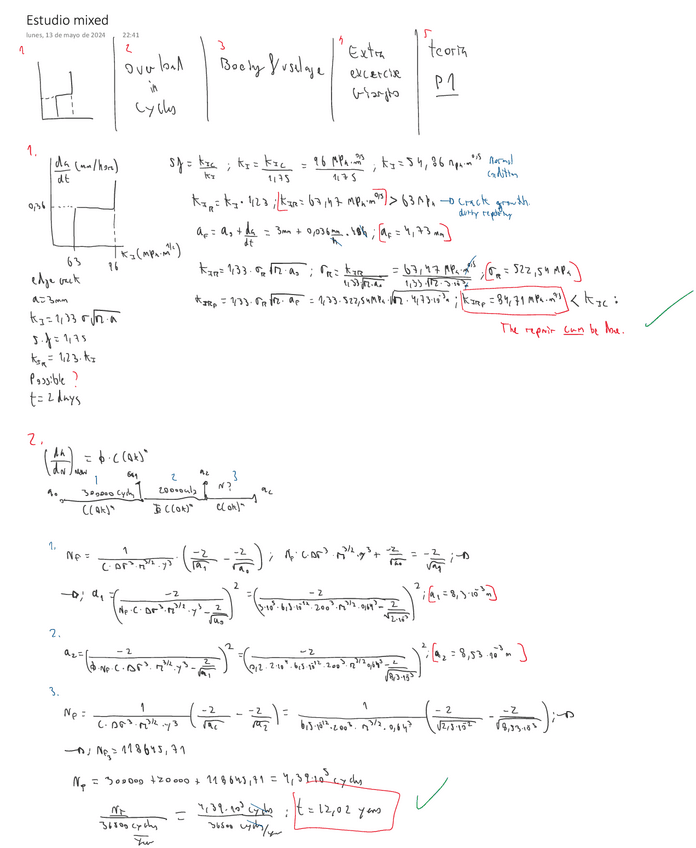 Estudio mixed
lunes, 13 de mayo de 2024 22:41
1
2
overload
in
cycles
3
Body fuselage
4
Extra
excercise
5
teoria
P1
1.
da/dt (mm/hora)
0,036
63
96
K_I (MPa·m^0,5)
edge crack
a=3mm
K_I = 1,33 σ√π·a
s.f = 1,75
K_IR = 1,23·K_I
Possible ?
t = 2 days
Sf = K_IC/K_I ; K_I = K_IC/1,75 = 96 MPa·m^0,5/1,75 ; K_I = 54,86 MPa·m^0,5 normal condition
K_IR = K_I · 1,23 ; K_IR = 67,47 MPa·m^0,5 > 63 MPa → crack growth during repairing
a_F = a_0 + da/dt = 3mm + 0,036 mm/h · 48h ; a_F = 4,73 mm
K_IR = 1,33·σ_R √π·a_0 ; σ_R = K_IR/1,33·√π·a_0 = 67,47 MPa·m^0,5/1,33·√π·3·10^-3 ; σ_R = 522,54 MPa
K_IRF = 1,33·σ_R √π·a_F = 1,33·522,54MPa·√π·4,73·10^-3 ; K_IRF = 84,71 MPa·m^0,5 < K_IC :
The repair can be done.
2.
(da/dN)_new = ϕ·C(ΔK)^n
1 2 3
a_0 300000 cycles a_1 20000 cycles a_2 N? a_c
C(ΔK)^n ϕC(ΔK)^n C(ΔK)^n
1. N_F = 1/(C·Δσ^3·π^3/2·Y^3) · (-2/√a_1 - -2/√a_0) ; N_F·C·Δσ^3·π^3/2·Y^3 + -2/√a_0 = -2/√a_1 ; →
→; a_1 = (-2/(N_F·C·Δσ^3·π^3/2·Y^3 - 2/√a_0))^2 = (-2/(3·10^5·6,3·10^-12·200^3·π^3/2·0,64^3 - 2/√2·10^-3))^2 ; a_1 = 8,3·10^-3 m
2.
a_2 = (-2/(ϕ·N_F·C·Δσ^3·π^3/2·Y^3 - 2/√a_1))^2 = (-2/(0,2·2·10^4·6,3·10^-12·200^3·π^3/2·0,64^3 - 2/√8,3·10^-3))^2 ; a_2 = 8,53·10^-3 m
3.
N_F = 1/(C·Δσ^3·π^3/2·Y^3) (-2/√a_c - -2/√a_2) = 1/(6,3·10^-12·200^3·π^3/2·0,64^3) (-2/√2,5·10^-2 - -2/√8,53·10^-3) ; →
→; N_F3 = 118645,71
N_F = 300000 + 20000 + 118645,71 = 4,39·10^5 cycles
N_F/36500 cycles/year = 4,39·10^5 cycles/36500 cycles/year ; t = 12,02 years